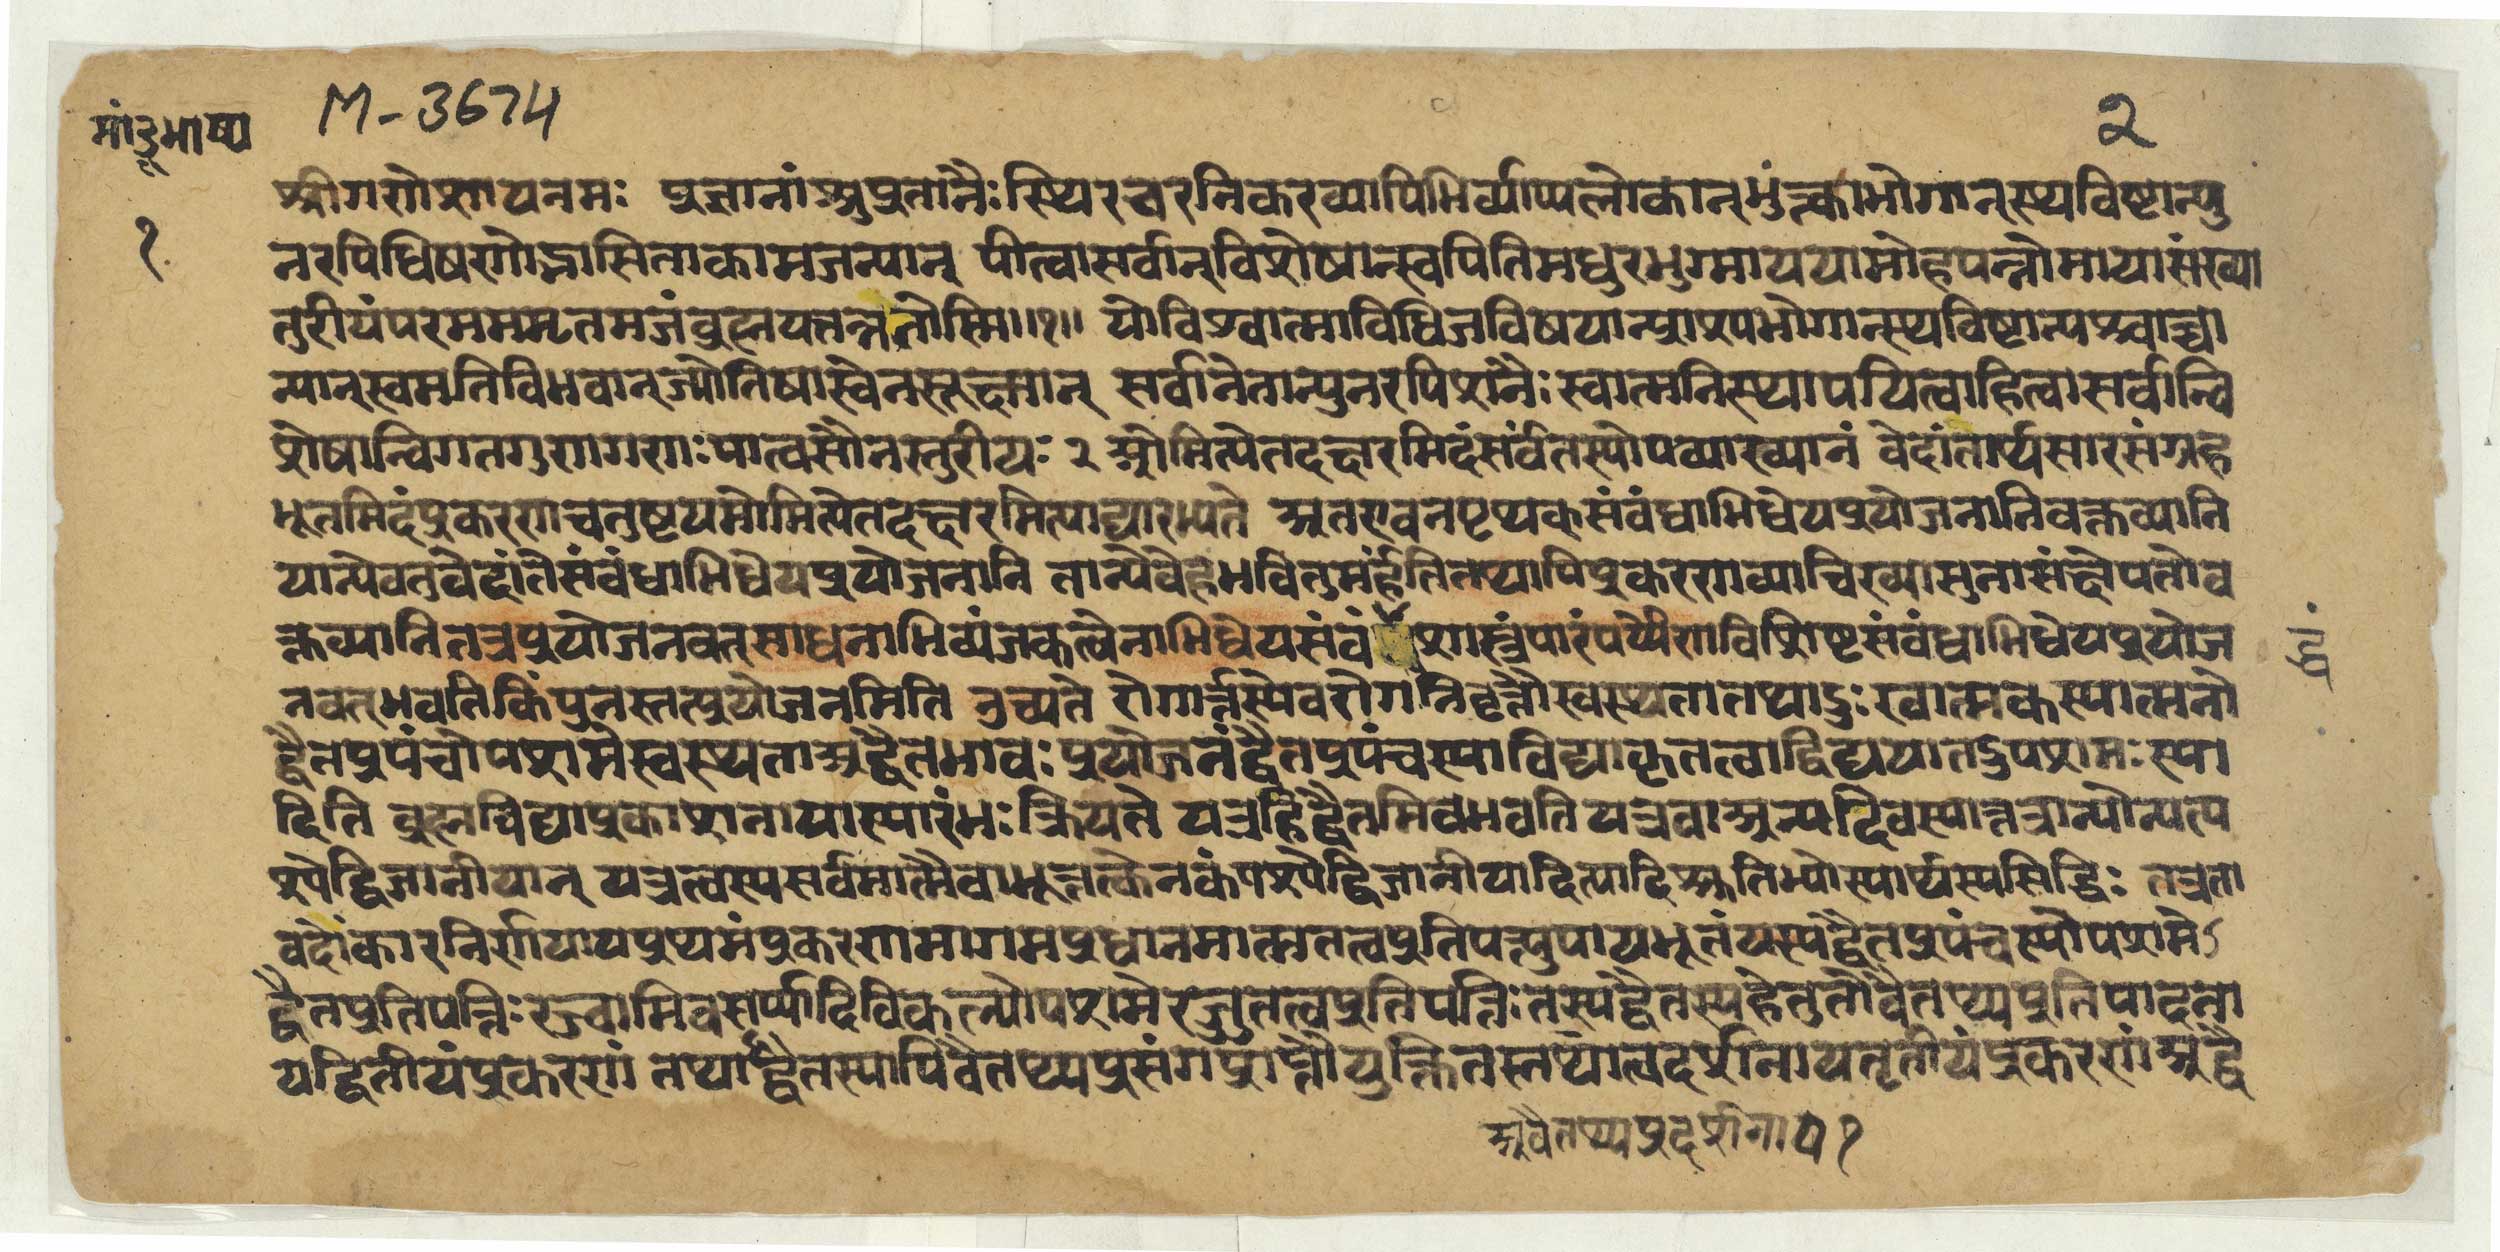 M-3674
२
मांडूभाष्य
१
श्रीगणेशायनमः प्रज्ञानांशुप्रतानैः स्थिरचरनिकरव्यापिभिर्व्याप्यलोकान् भुंत्काभोगान्स्थविष्टान्पु
नरपिधिषणोद्भासिताकामजन्यान् पीत्वासर्वान्विशेषान्स्वपितिमधुरभुग्माययामोहपन्नोमायासंख्या
तुरीयंपरममममृतमजंब्रह्मयत्तन्नतोस्मि॥१॥ योविश्वात्माविधिजविषयान्प्राश्यभोगान्स्थविष्टान्पश्चाच्चा
न्यान्स्वमतिविभवान्ज्योतिषास्वेनसूक्ष्मान् सर्वानेतान्पुनरपिशनैः स्वात्मनिस्थापयित्वाहित्वासर्वान्वि
शेषान्विगतगुणगणः पात्वसौनस्तुरीयः २ ओमित्येतदक्षरमिदंसर्वंतस्योपव्याख्यानं वेदांतार्थसारसंग्रह
भूतमिदंप्रकरणचतुष्टयमोमित्येतदक्षरमित्याद्यारभ्यते अतएवनपृथक्संबंधाभिधेयप्रयोजनानिवक्तव्यानि
यान्येवतुवेदांतेसंबंधाभिधेयप्रयोजनानि तान्येवेहभवितुमर्हंतितथापिप्रकरणव्याचिख्यासुनासंक्षेपतोव
क्तव्यानितत्रप्रयोजनवत्साधनाभिव्यंजकत्वेनाभिधेयसंबं शास्त्रंपारंपर्येणविशिष्टसंबंधाभिधेयप्रयोज
द्धं
नवत्भवतिकिंपुनस्तत्प्रयोजनमिति त्रुच्यते रोगार्त्तस्येवरोगनिवृत्तौस्वस्थतातथादुःखात्मकस्यात्मनो
द्वैतप्रपंचोपशमेस्वस्थताअद्वैतभावः प्रयोजनंद्वैतप्रपंचस्याविद्याकृतत्वाद्विद्ययातदुपशमः स्या
दिति ब्रह्मविद्याप्रकाशनायास्यारंभः क्रियते यत्रहिद्वैतमिवभवति यत्रवाअन्यदिवस्यात्तत्रान्योन्यत्प
श्येद्विजानीयान् यत्रत्वस्यसर्वमात्मैवाभूत्तत्केनकंपश्येद्विजानीयादित्यादिश्रुतिभ्योस्यार्थस्यसिद्धिः तत्रता
वदोंकारनिर्णयायप्रथमंप्रकरणमागमप्रधानमात्मतत्वप्रतिपत्त्युपायभूतंयस्यद्वैतप्रपंचस्योपशमेऽ
द्वैतप्रतिपत्तिः रज्वामिवसर्प्पादिविकल्पोपशमेरज्जुतत्वप्रतिपत्तिः तस्यद्वैतस्यहेतुतोवैतथ्यप्रतिपादना
यद्वितीयंप्रकरणं तथाद्वैतस्यापिवैतथ्यप्रसंगप्राप्तौयुक्तितस्तथात्वदर्शनायतृतीयंप्रकरणंअद्वै
अवैतथ्यप्रदर्शनाय १